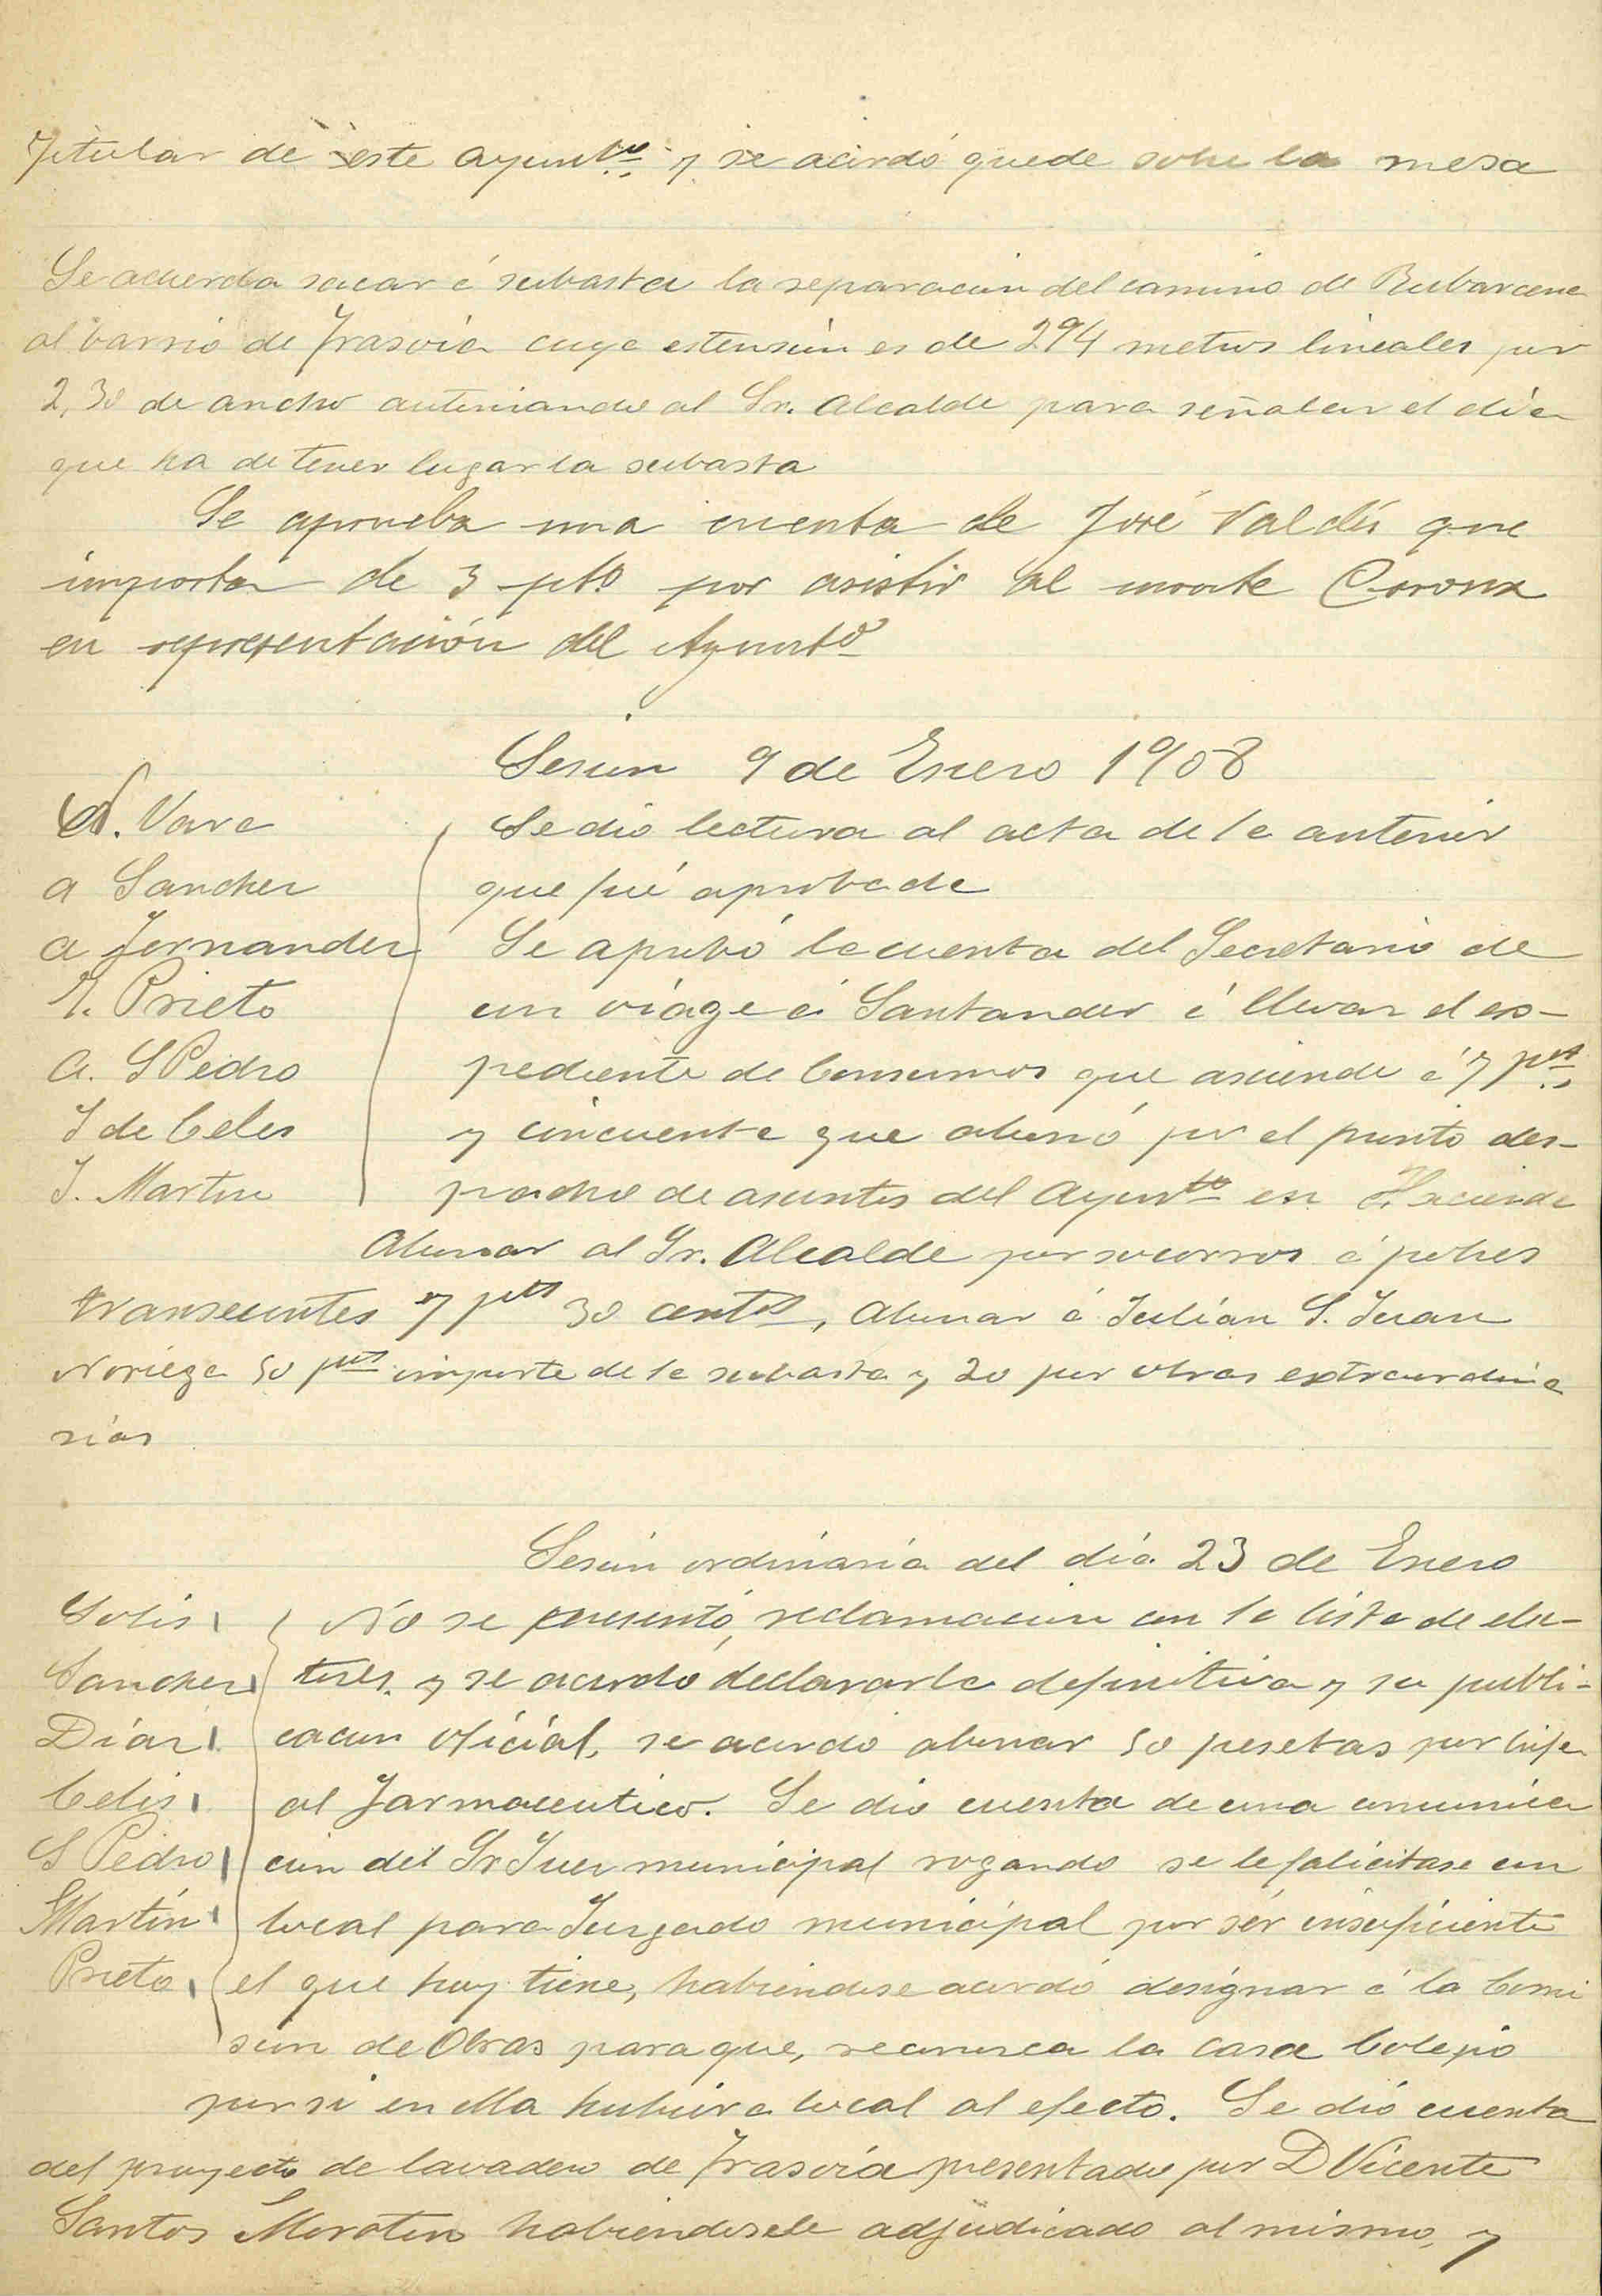 Titular de este Ayunt.to y se acordó quede sobre la mesa
Se acuerda sacar á subasta la reparacion del camino de Rubarcena
al barrio de Trasvia cuya estension es de 294 metros lineales por
2,30 de ancho autorizando al Sr. Alcalde para señalar el dia
que ha de tener lugar la subasta
Se aprueba una cuenta de José Valdés que
importa de 3 pts por asistir al monte Corona
en representación del Ayunto
Sesion 9 de Enero 1908
Vara
a Sanchez
a Fernandez
Y. Prieto
A. S Pedro
J de Celis
J. Martin
Se dio lectura al acta de la anterior
que fué aprobada
Se aprobó la cuenta del Secretario de
un viage á Santander á llevar el ex-
pediente de Consumos que asciende á 7 pts
y cincuenta que abonó por el pronto des-
pacho de asuntos del Ayunto en Hacienda
Abonar al Sr. Alcalde por socorros á pobres
transeuntes 7 pts 30 cents, Abonar á Julián S. Juan
Noriega 50 pts importe de la subasta y 20 por obras extraordina
rias
Sesion ordinaria del dia 23 de Enero
Solis
Sanchez
Díaz
Celis
S Pedro
Martín
Prieto
No se presentó reclamacion con la lista de elec-
tores y se acordó declararla definitiva y su publi-
cacion oficial, se acordó abonar 50 pesetas por
al Farmaceutico. Se dio cuenta de una comunica
cion del Sr Juez municipal rogando se le falicitase un
local para Juzgado municipal por sér insuficiente
el que hoy tiene, habiendose acordó designar á la Comi
sion de Obras para que, reconozca la casa Colegio
por si en ella hubiera local al efecto. Se dió cuenta
del proyecto de lavadero de Trasvía presentado por D Vicente
Santos Moratin habiendosele adjudicado al mismo, y